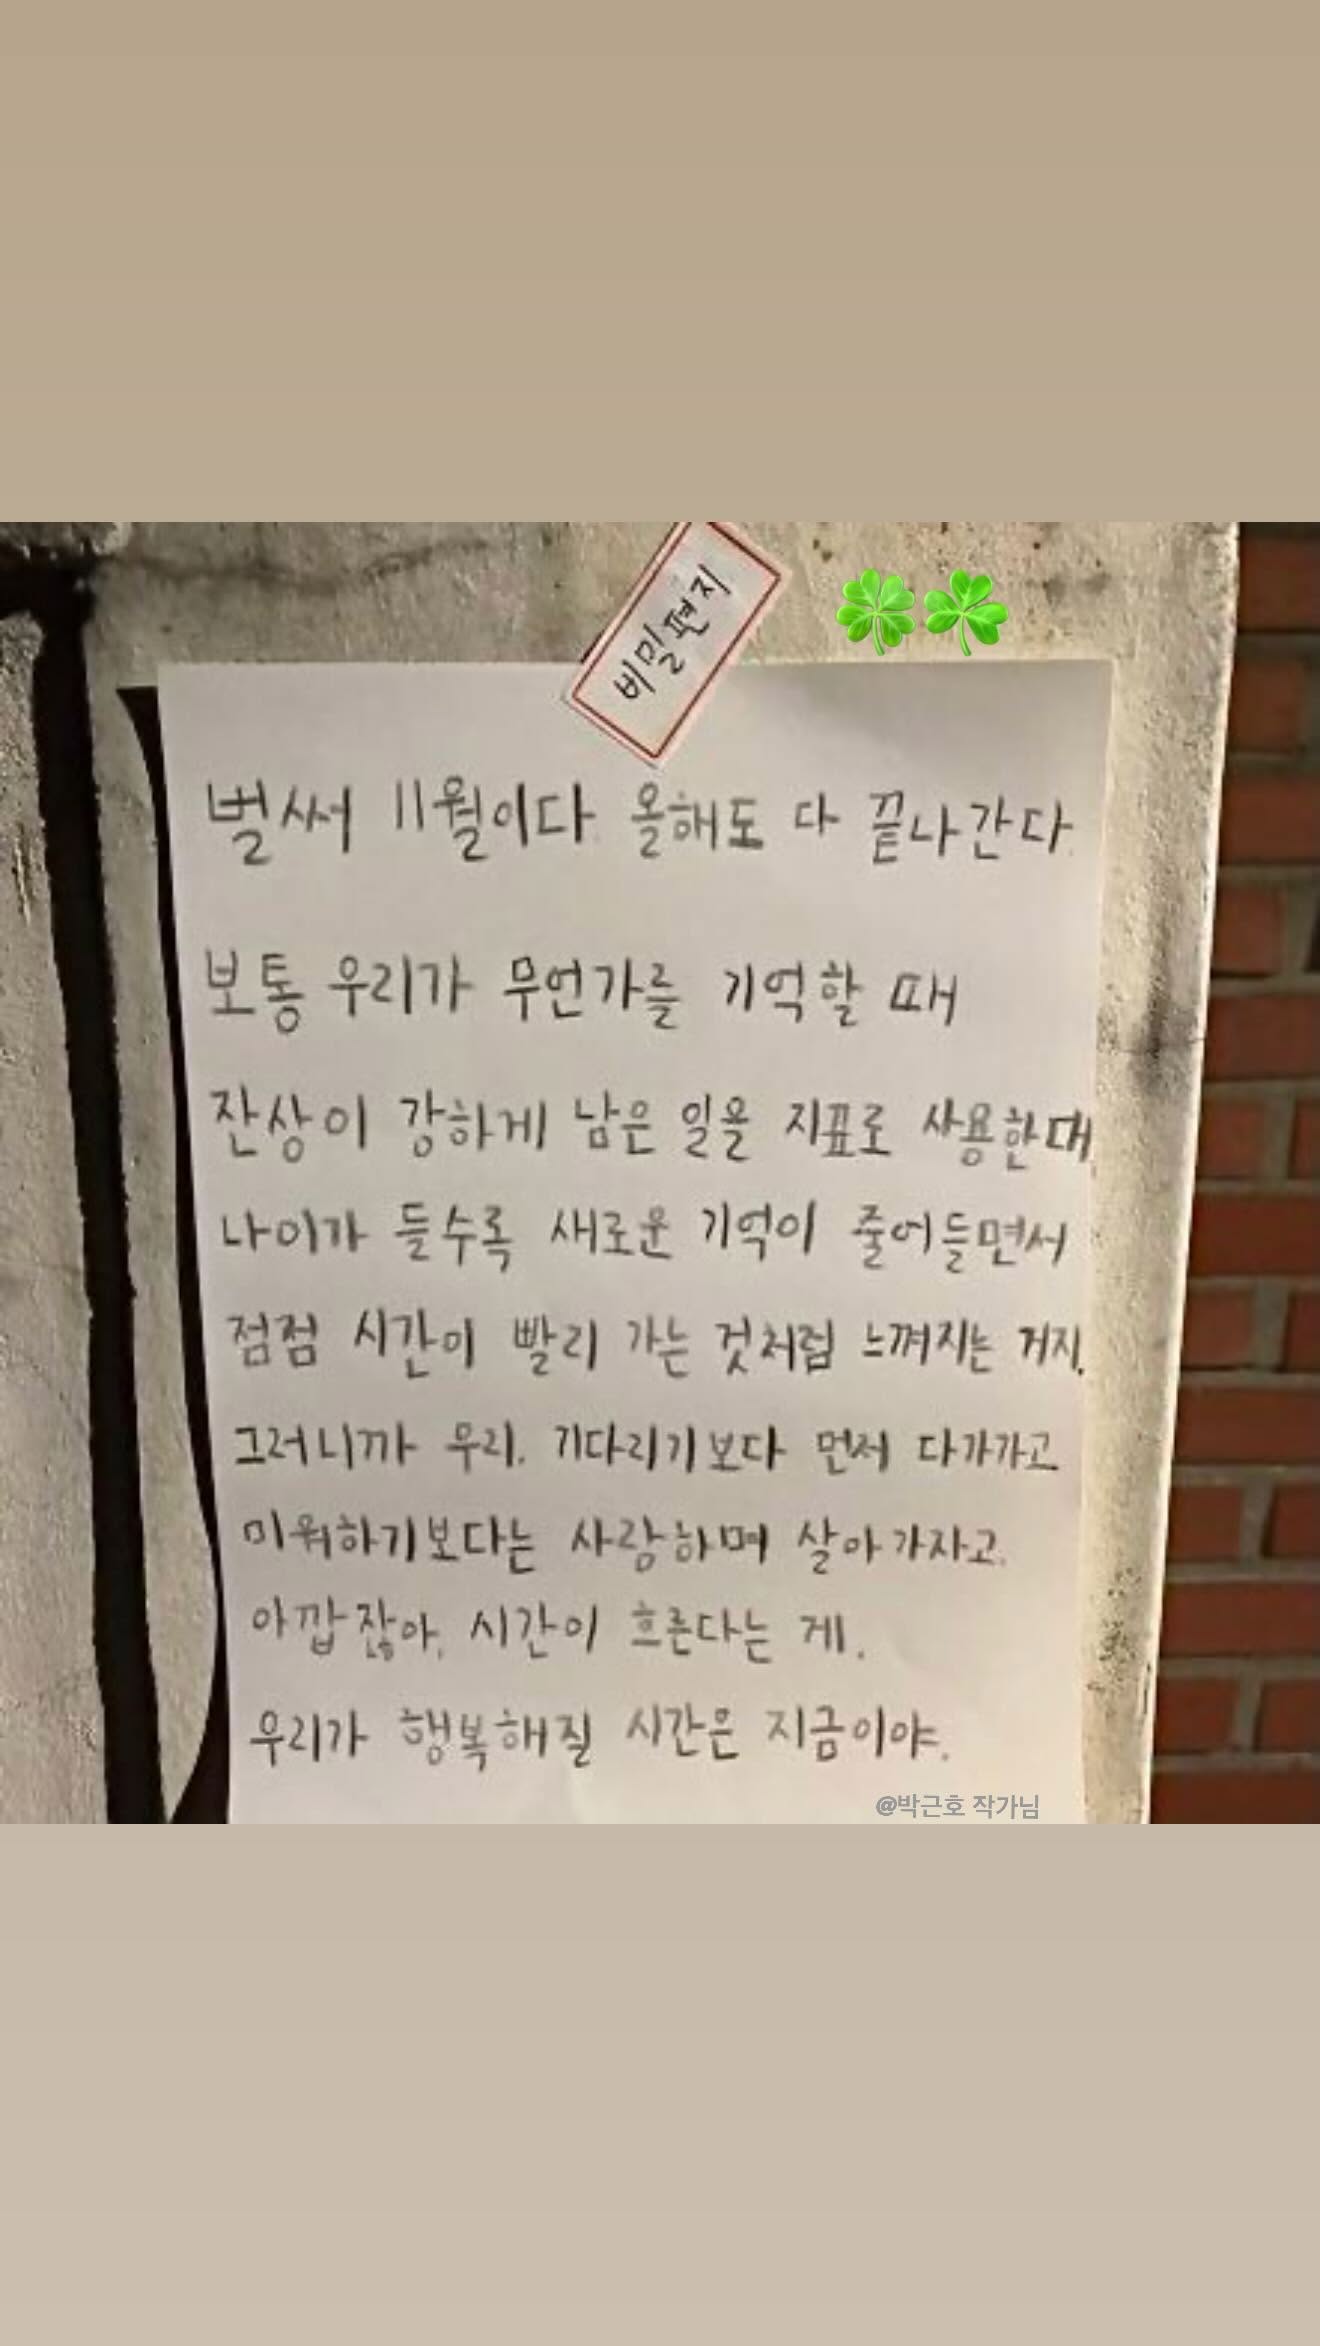 비밀편지
벌써 11월이다. 올해도 다 끝나간다.
보통 우리가 무언가를 기억할 때
잔상이 강하게 남은 일을 지표로 사용한대.
나이가 들수록 새로운 기억이 줄어들면서
점점 시간이 빨리 가는 것처럼 느껴지는 거지.
그러니까 우리. 기다리기보다 먼저 다가가고
미워하기보다는 사랑하며 살아가자고.
아깝잖아, 시간이 흐른다는 게.
우리가 행복해질 시간은 지금이야.
@박근호 작가님